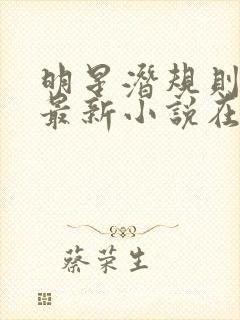 明星潛規則
最新小說在
蔡荣生